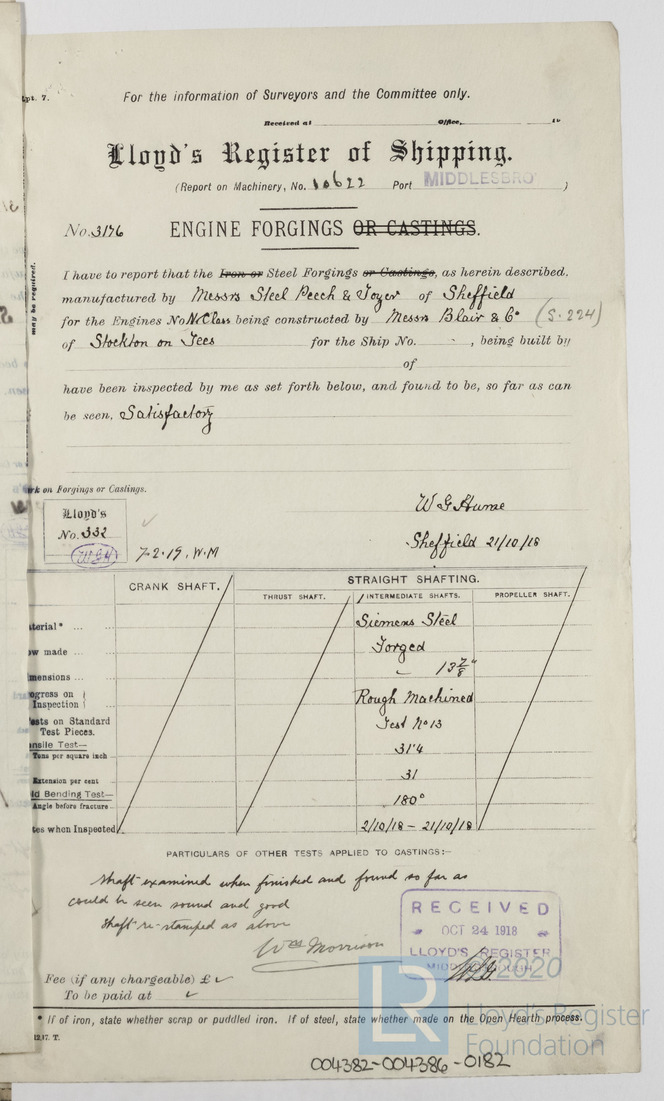 pt. 7.
For the information of Surveyors and the Committee only.
Received at Office, 19
Lloyd's Register of Shipping.
(Report on Machinery, No. 10622 Port MIDDLESBRO' )
No. 3176 ENGINE FORGINGS OR CASTINGS.
may be required.
I have to report that the Iron or Steel Forgings or Castings, as herein described,
manufactured by Messrs Steel Peech & Tozer of Sheffield
for the Engines No N Class being constructed by Messrs Blair & Co (S. 224)
of Stockton on Tees for the Ship No. - , being built by
of
have been inspected by me as set forth below, and found to be, so far as can
be seen, Satisfactory
rk on Forgings or Castings.
Lloyd's
No. 332
WGH
7-2-19. W.M
W G Hume
Sheffield 21/10/18
CRANK SHAFT. STRAIGHT SHAFTING.
THRUST SHAFT. 1 INTERMEDIATE SHAFTS. PROPELLER SHAFT.
terial* ... ... Siemens Steel
ow made ... ... Forged
mensions ... ... 13 7/8"
ogress on Inspection ... Rough Machined
ests on Standard Test Pieces. Test No 13
nsile Test—
Tons per square inch 31.4
Extension per cent 31
ld Bending Test—
Angle before fracture 180°
tes when Inspected 2/10/18 - 21/10/18
PARTICULARS OF OTHER TESTS APPLIED TO CASTINGS:—
Shaft examined when finished and found so far as
could be seen sound and good
Shaft re-stamped as above
Wm Morrison
RECEIVED
OCT 24 1918
LLOYD'S REGISTER
MIDDLESBROUGH
Fee (if any chargeable) £
To be paid at
* If of iron, state whether scrap or puddled iron. If of steel, state whether made on the Open Hearth process.
12,17. T.
© 2020
LR
Lloyd's Register
Foundation
004382-004386-0182